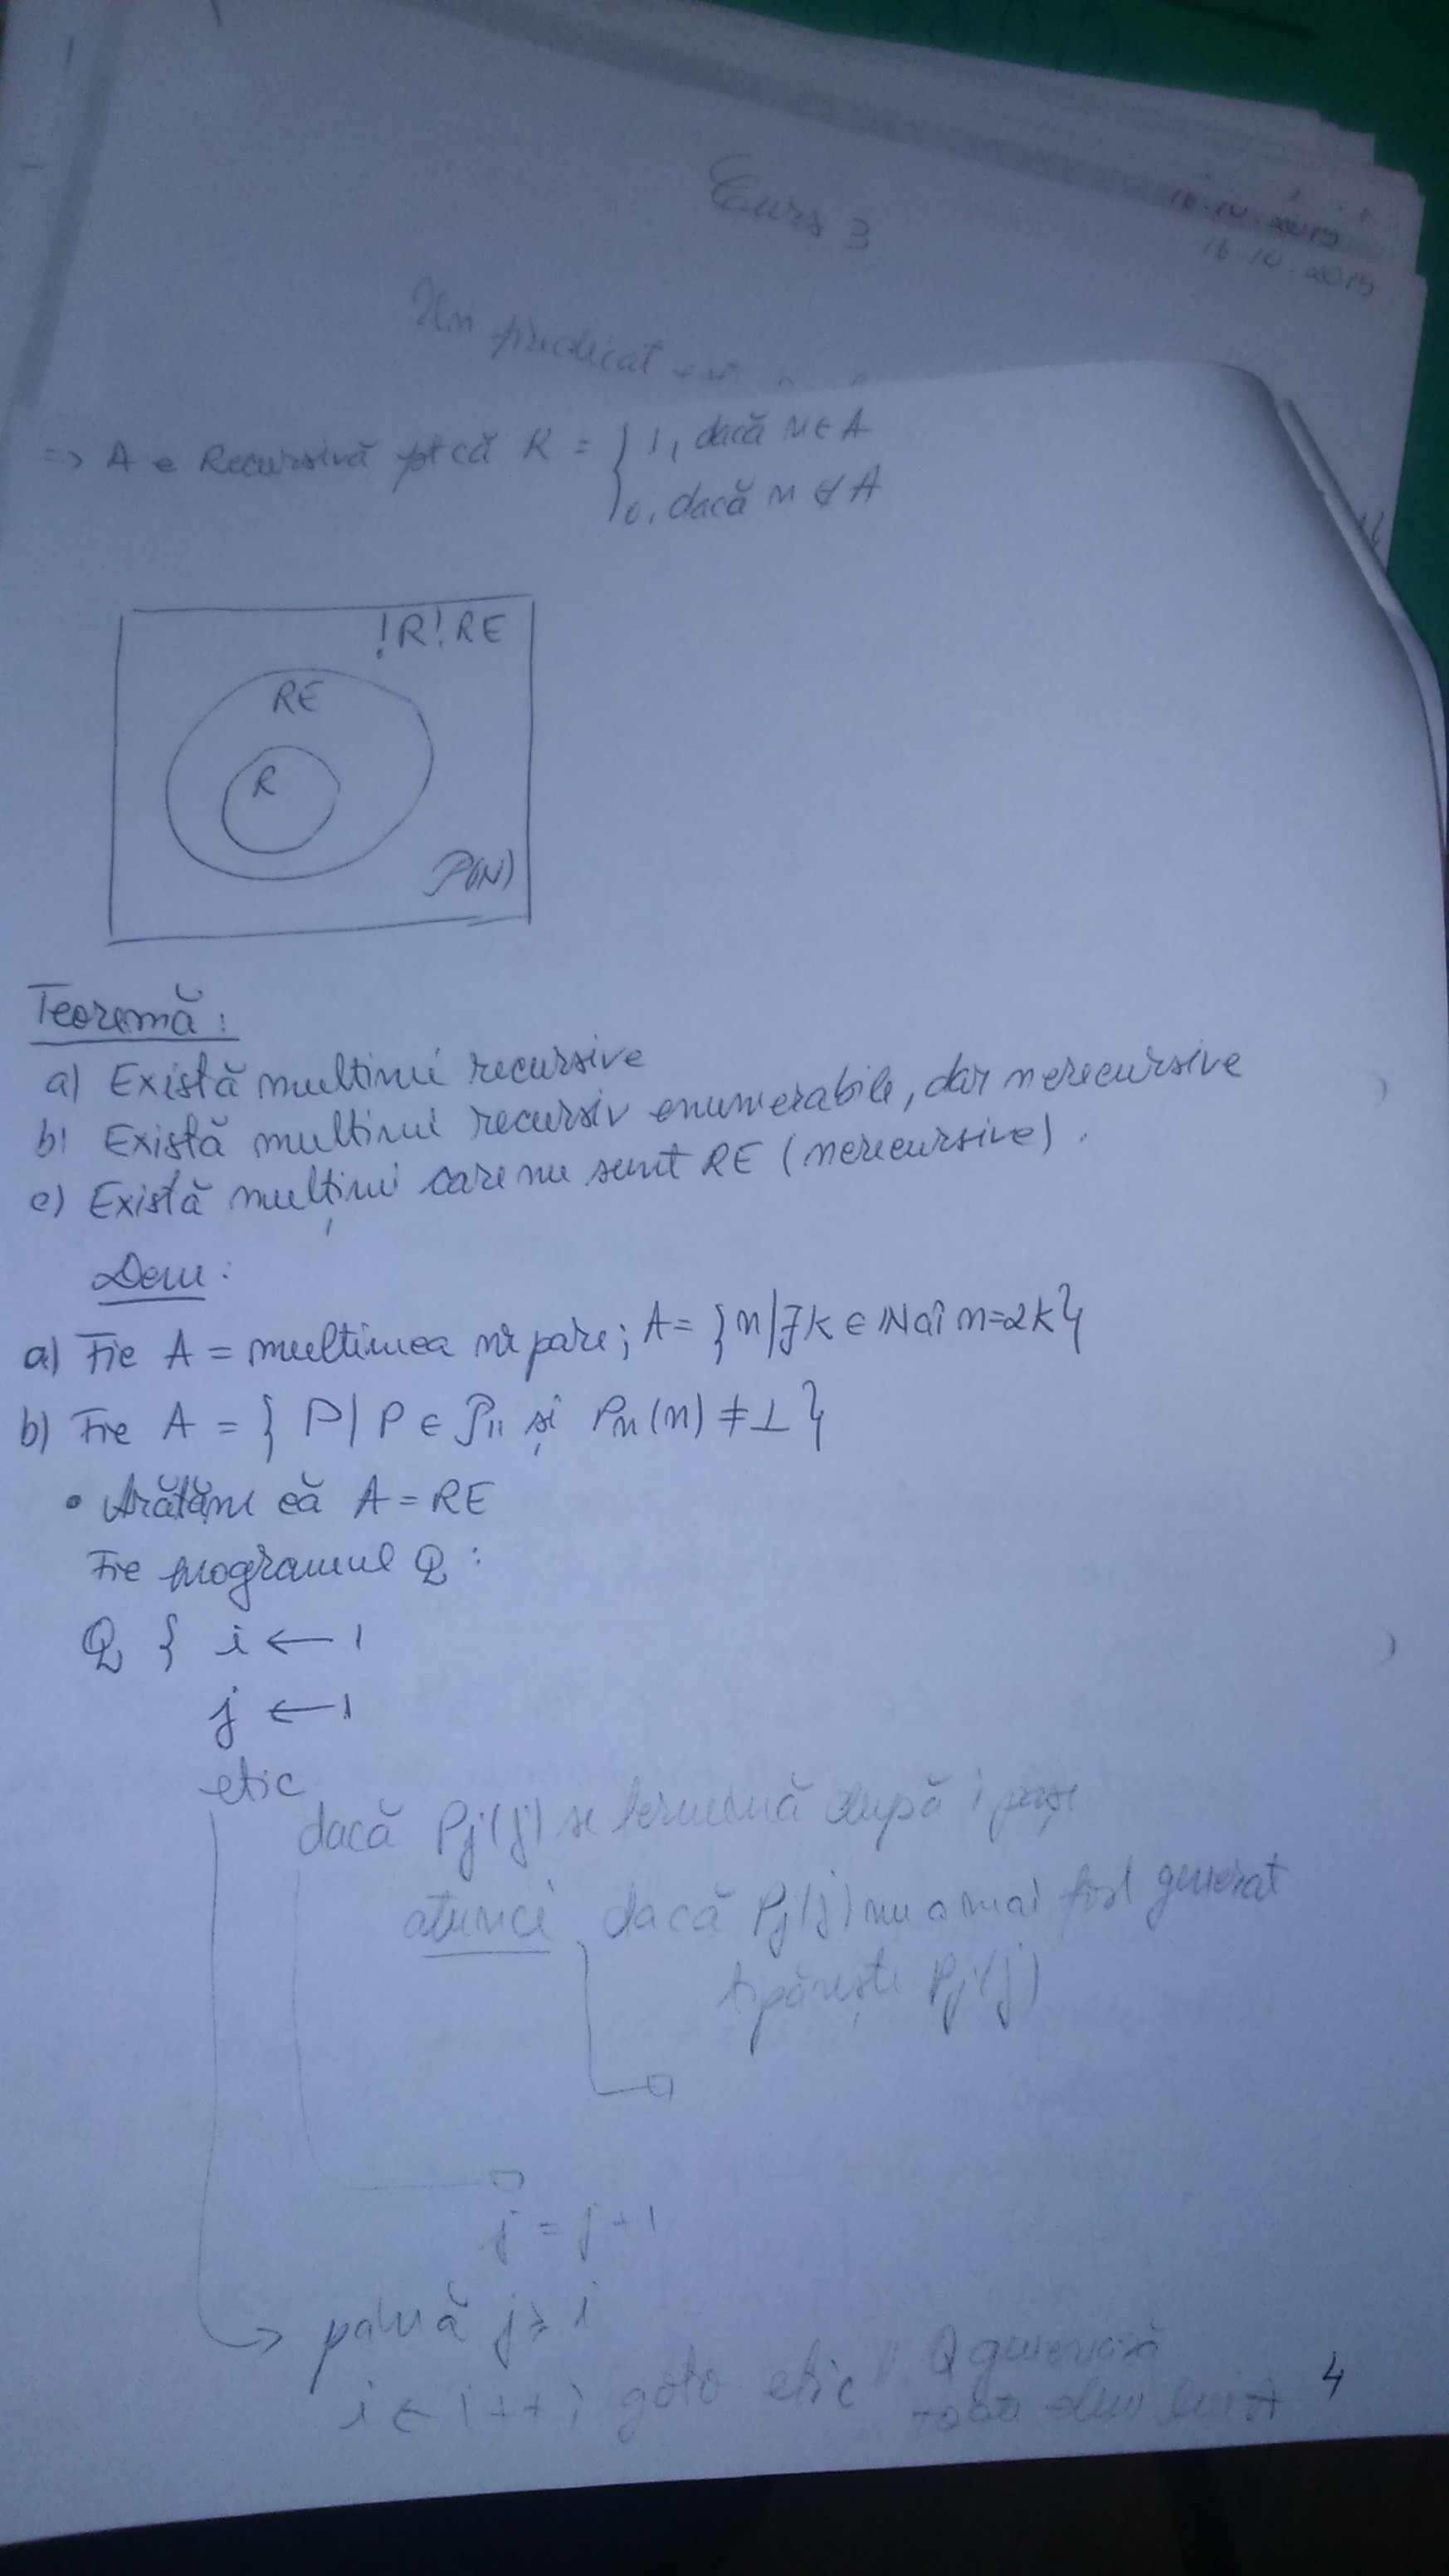 Curs 3
16.10.2015
16.10.2015
Un predicat
=> A e Recursivă pt că R = { 1, dacă n ∈ A
0, dacă n ∉ A
!R!RE
RE
R
P(N)
Teoremă:
a) Există multimi recursive
b) Există multimi recursiv enumerabile, dar nerecursive
c) Există mulțimi care nu sunt RE (nerecursive).
Dem:
a) Fie A = multimea nr pare; A = {n | ∃k ∈ N aî n=2k}
b) Fie A = { P | P ∈ P11 și Pn(n) ≠ ⊥ }
• Arătăm că A = RE
Fie programul Q:
Q { i ← 1
j ← 1
etic
dacă Pj(j) se termină după i pași
atunci dacă Pj(j) nu a mai fost generat
tipărește Pj(j)
j = j + 1
până j ≥ i
i ← i++; goto etic // Q generează
toate elem lui A
4